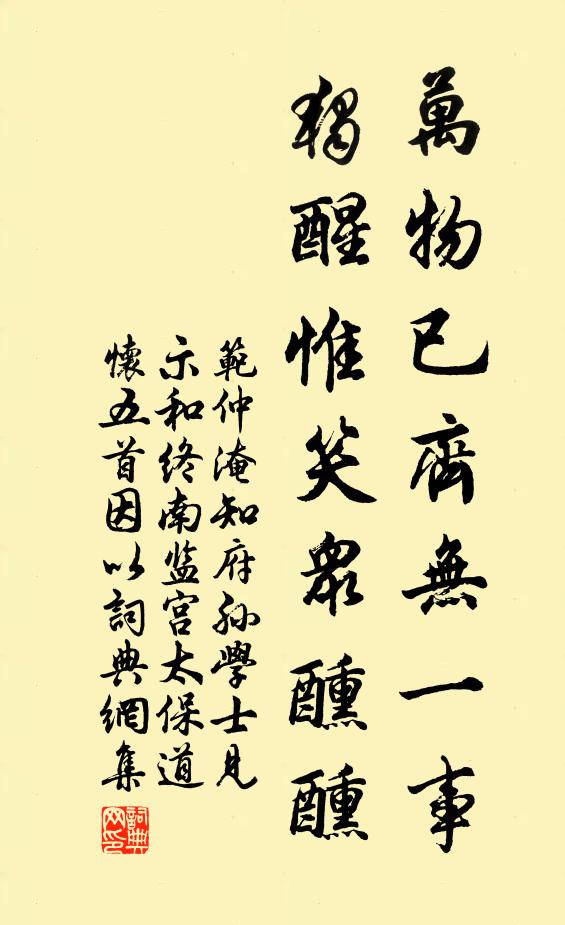 萬物已齊無一事
獨醒惟笑衆醺醺
範仲淹知府孙學士見
示和终南监宫太保道
懷五首因以詞典網集
詞典网印